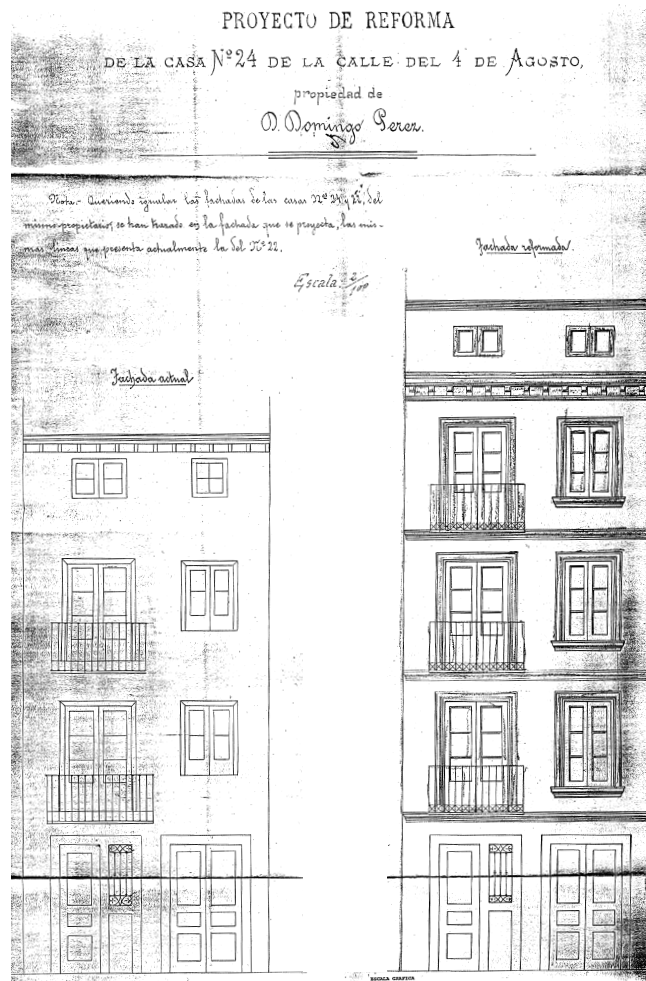 PROYECTO DE REFORMA
DE LA CASA Nº 24 DE LA CALLE DEL 4 DE AGOSTO,
propiedad de
D. Domingo Perez.
Nota.- Queriendo igualar las fachadas de las casas Nos 24 y 22, del
mismo propietario, se han trazado en la fachada que se proyecta, las mis-
mas lineas que presenta actualmente la del Nº 22.
Fachada reformada.
Escala 2/100
Fachada actual
ESCALA GRAFICA